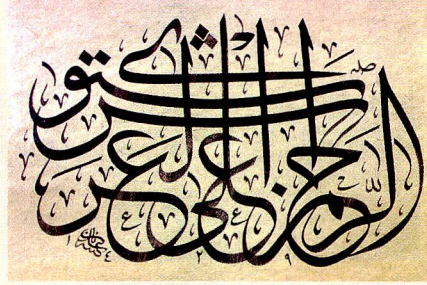 الرحمن على العرش استوى